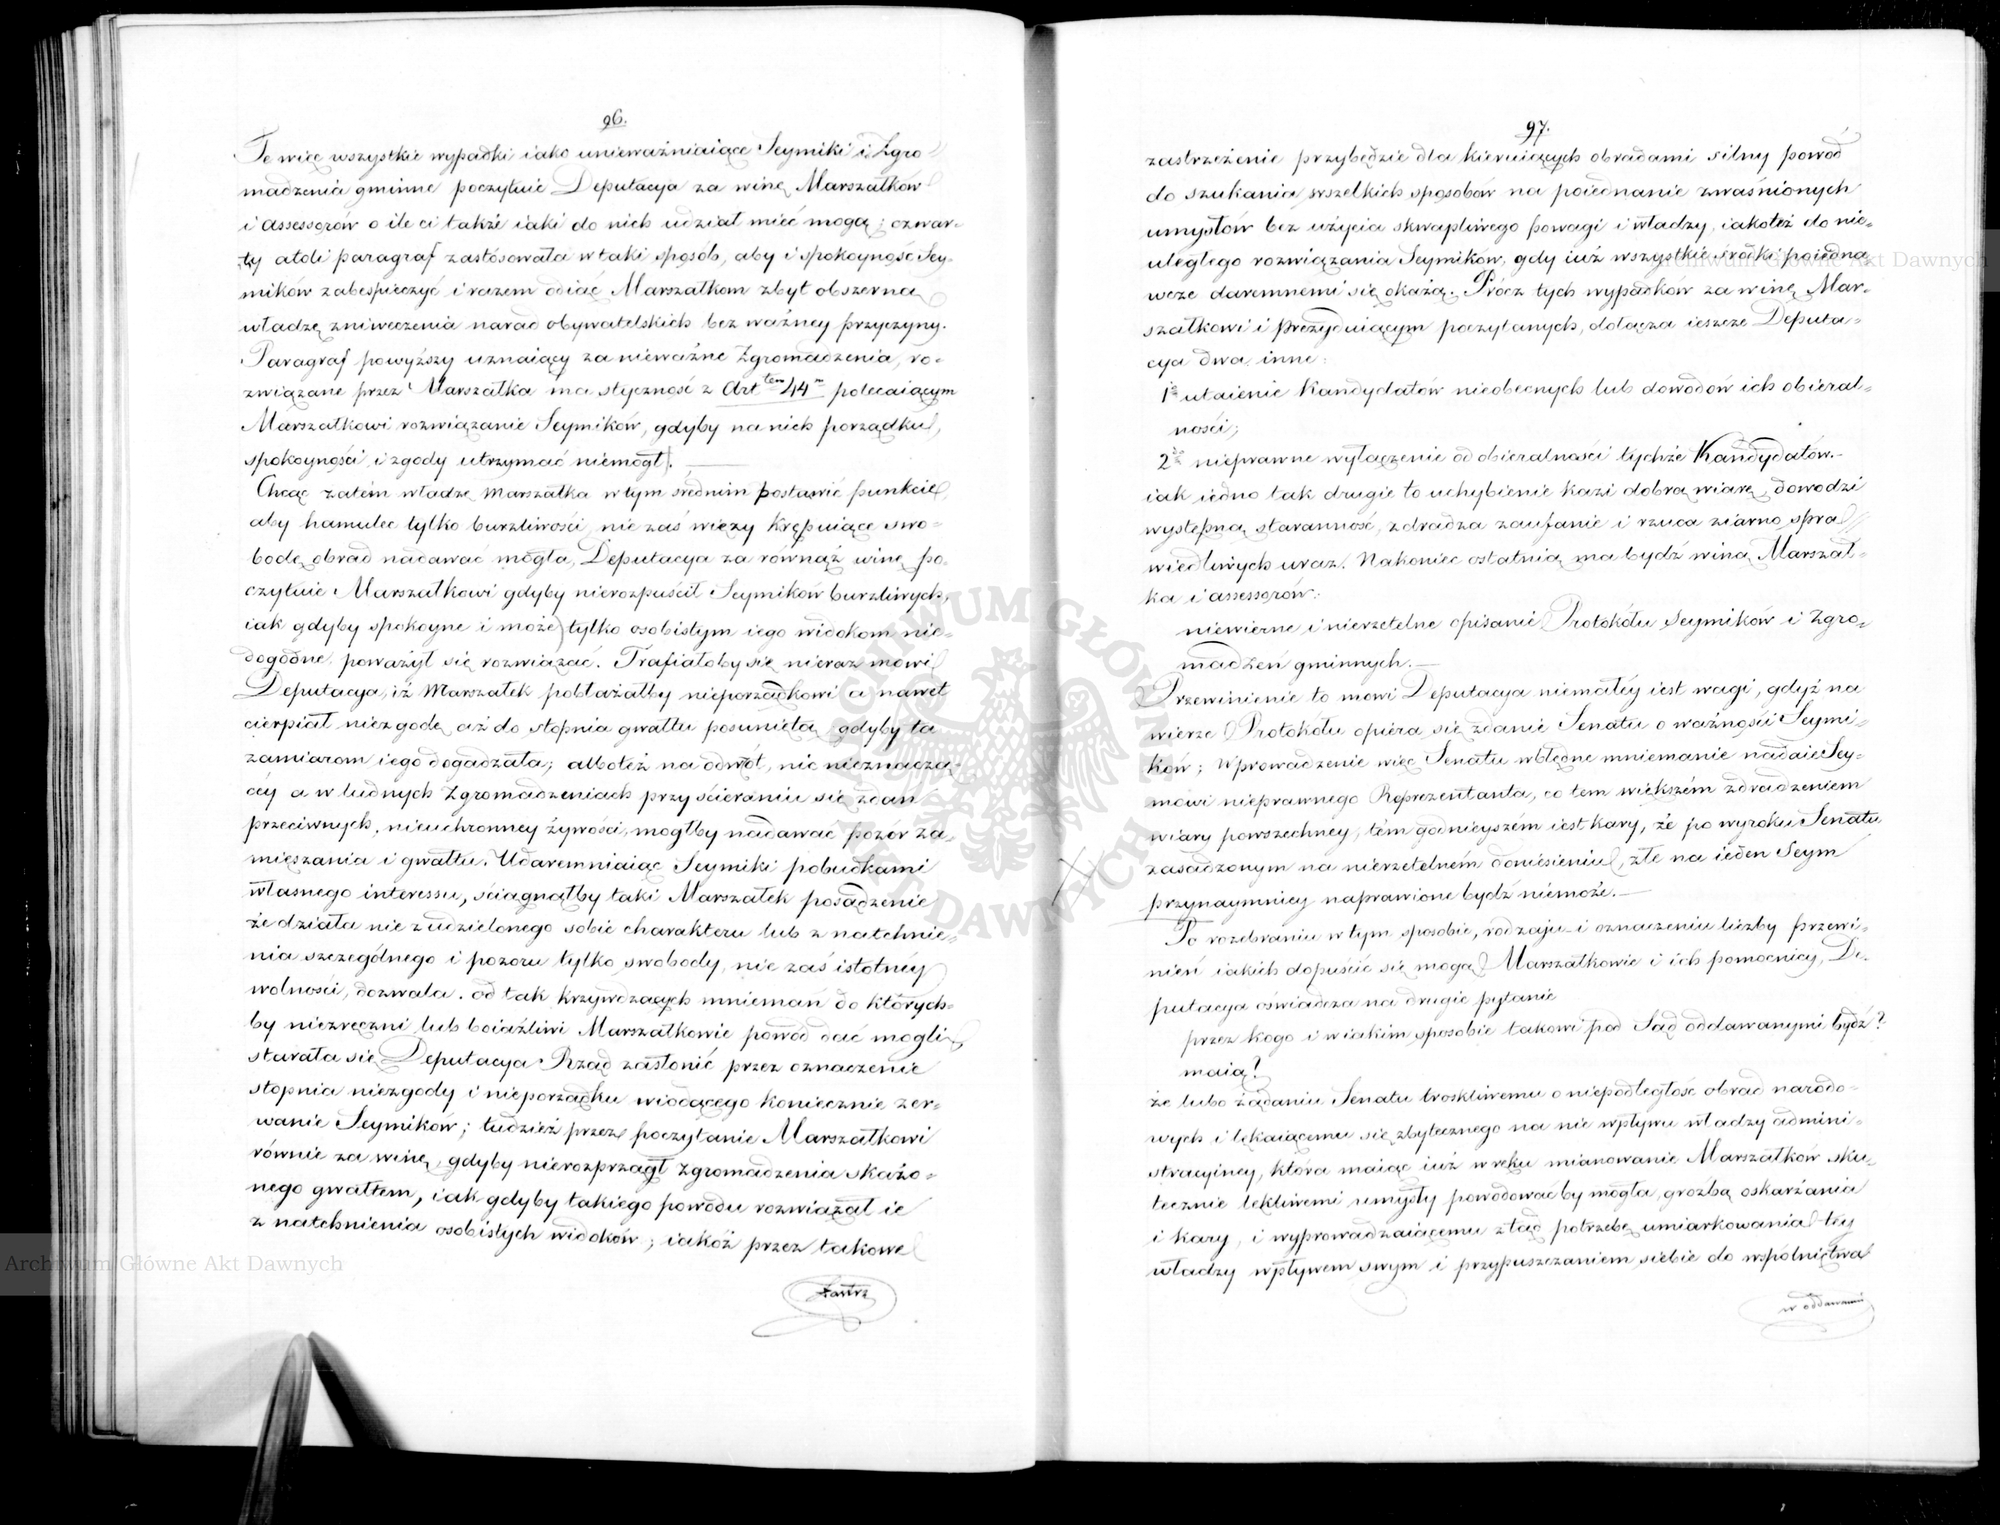 96.
Te więc wszystkie wypadki iako unieważniaiące Seymiki i Zgro-
madzenia gminne poczytuie Deputacya za winę Marszałków
i assessorów o ile ci także iaki do nich udział mieć mogą; czwar-
ty atoli paragraf zastósowała w taki sposób, aby i spokoyność Sey-
mików zabespieczyć i razem odiąć Marszałkom zbyt obszerną
władzę zniweczenia narad obywatelskich bez ważney przyczyny.
Paragraf powyższy uznaiący za nieważne Zgromadzenia, ro-
związane przez Marszałka ma styczność z Art tem 44 m polecaiącym
Marszałkowi rozwiązanie Seymików, gdyby na nich porządku,
spokoyności i zgody utrzymać niemógł.
Chcąc zatém władzę Marszałka w tym średnim postawić punkcie,
aby hamulec tylko burzliwości, nie zaś więzy krępuiące swo-
bodę obrad nadawać mogła, Deputacya za równąż winę po-
czytuie Marszałkowi gdyby nierozpuścił Seymików burzliwych,
iak gdyby spokoyne i może tylko osobistym iego widokom nie-
dogodne, poważył się rozwiązać. Trafiałoby się nieraz mówi
Deputacya, iż Marszałek pobłażałby nieporządkowi a nawet
cierpiał niezgodę aż do stopnia gwałtu posuniętą gdyby ta
zamiarom iego dogadzała; albotéż na odwrót, nic nieznaczą-
céy a w ludnych Zgromadzeniach przy ścieraniu się zdań
przeciwnych, nieuchronney żywości, mógłby nadawać pozór za-
mięszania i gwałtu. Udaremniaiąc Seymiki pobudkami
własnego interessu, ściągnąłby taki Marszałek posądzenie
że działa nie z udzielonego sobie charakteru lub z natchnie-
nia szczególnego i pozoru tylko swobody, nie zaś istotnéy
wolności, dozwala. Od tak krzywdzących mniemań do których-
by niezręczni lub boiaźliwi Marszałkowie powód dać mogli,
starała się Deputacya Rząd zasłonić przez oznaczenie
stopnia niezgody i nieporządku wiodącego koniecznie zer-
wanie Seymików; tudzież przez poczytanie Marszałkowi
równie za winę, gdyby nierozprzągł Zgromadzenia skażo-
nego gwałtem, iak gdyby takiego powodu rozwiązał ie
z natchnienia osobistych widoków; iakóż przez takowe
zastrz
97.
zastrzeżenie przybędzie dla kieruiących obradami silny powód
do szukania wszelkich sposobów na poiednanie zwaśnionych
umysłów bez użycia skwapliwego powagi i władzy, iakotéż do nie-
uległego rozwiązania Seymików, gdy iuż wszystkie środki poiedna-
wcze daremnemi się okażą. Prócz tych wypadków za winę Mar-
szałkowi i prezyduiącym poczytanych, dołącza ieszcze Deputa-
cya dwa inne:
1o utaienie Kandydatów nieobecnych lub dowodów ich obieral-
ności;
2do nieprawne wyłączenie od obieralności tychże Kandydatów.-
iak iedno tak drugie to uchybienie kazi dobrą wiarę, dowodzi
występną staranność, zdradza zaufanie i rzuca ziarno spra-
wiedliwych uraz. Nakoniec ostatnią ma bydź winą Marszał-
ka i assessorów:
niewierne i nierzetelne opisanie Protokółu Seymików i Zgro-
madzeń gminnych.-
Przewinienie to mówi Deputacya niemałéy iest wagi, gdyż na
wierze Protokółu opiéra się zdanie Senatu o ważności Seymi-
ków; Wprowadzenie więc Senatu w błędne mniemanie nadaie Sey-
mowi nieprawnego Reprezentanta, co tem większém zdradzeniem
wiary powszechney, tém godnieyszém iest kary, że po wyroku Senatu
zasadzonym na nierzetelném doniesieniu, złe na ieden Seym
przynaymniey naprawione bydź niemoże.-
Po rozebraniu w tym sposobie, rodzaju i oznaczeniu liczby przewi-
nień iakich dopuścić się mogą Marszałkowie i ich pomocnicy, De-
putacya oświadcza na drugie pytanie
przez kogo i w iakim sposobie takowi pod Sąd oddawanymi bydź
maią?
że lubo żądaniu Senatu troskliwemu o niepodległość obrad narodo-
wych i lękaiącemu się zbytecznego na nie wpływu władzy admini-
stracyiney, która maiąc iuż w ręku mianowanie Marszałków sku-
tecznie lękliwemi umysły powodować by mogła, groźbą oskarżania
i kary, i wyprowadzaiącemu ztąd potrzebę umiarkowania tey
władzy wpływem swym i przypuszczaniem siebie do wspólnictwa
w oddawaniu
Archiwum Główne Akt Dawnych
Archiwum Główne Akt Dawnych
ARCHIWUM GŁÓWNE AKT DAWNYCH